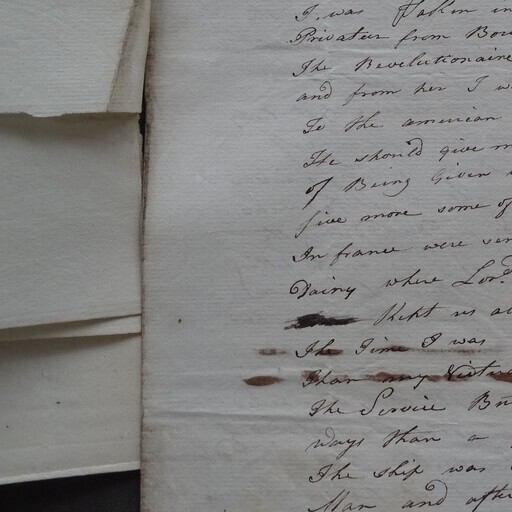 I was Taken in
Privateer from Bou
The Revolutionaire
and from her I w
To the american
He should give m
of Being Given
five more some of
In france were sen
Dainy where Lord
Kept us a
The Time I was
Than my
The Service Bu
ways than a
The ship was
Man and afte